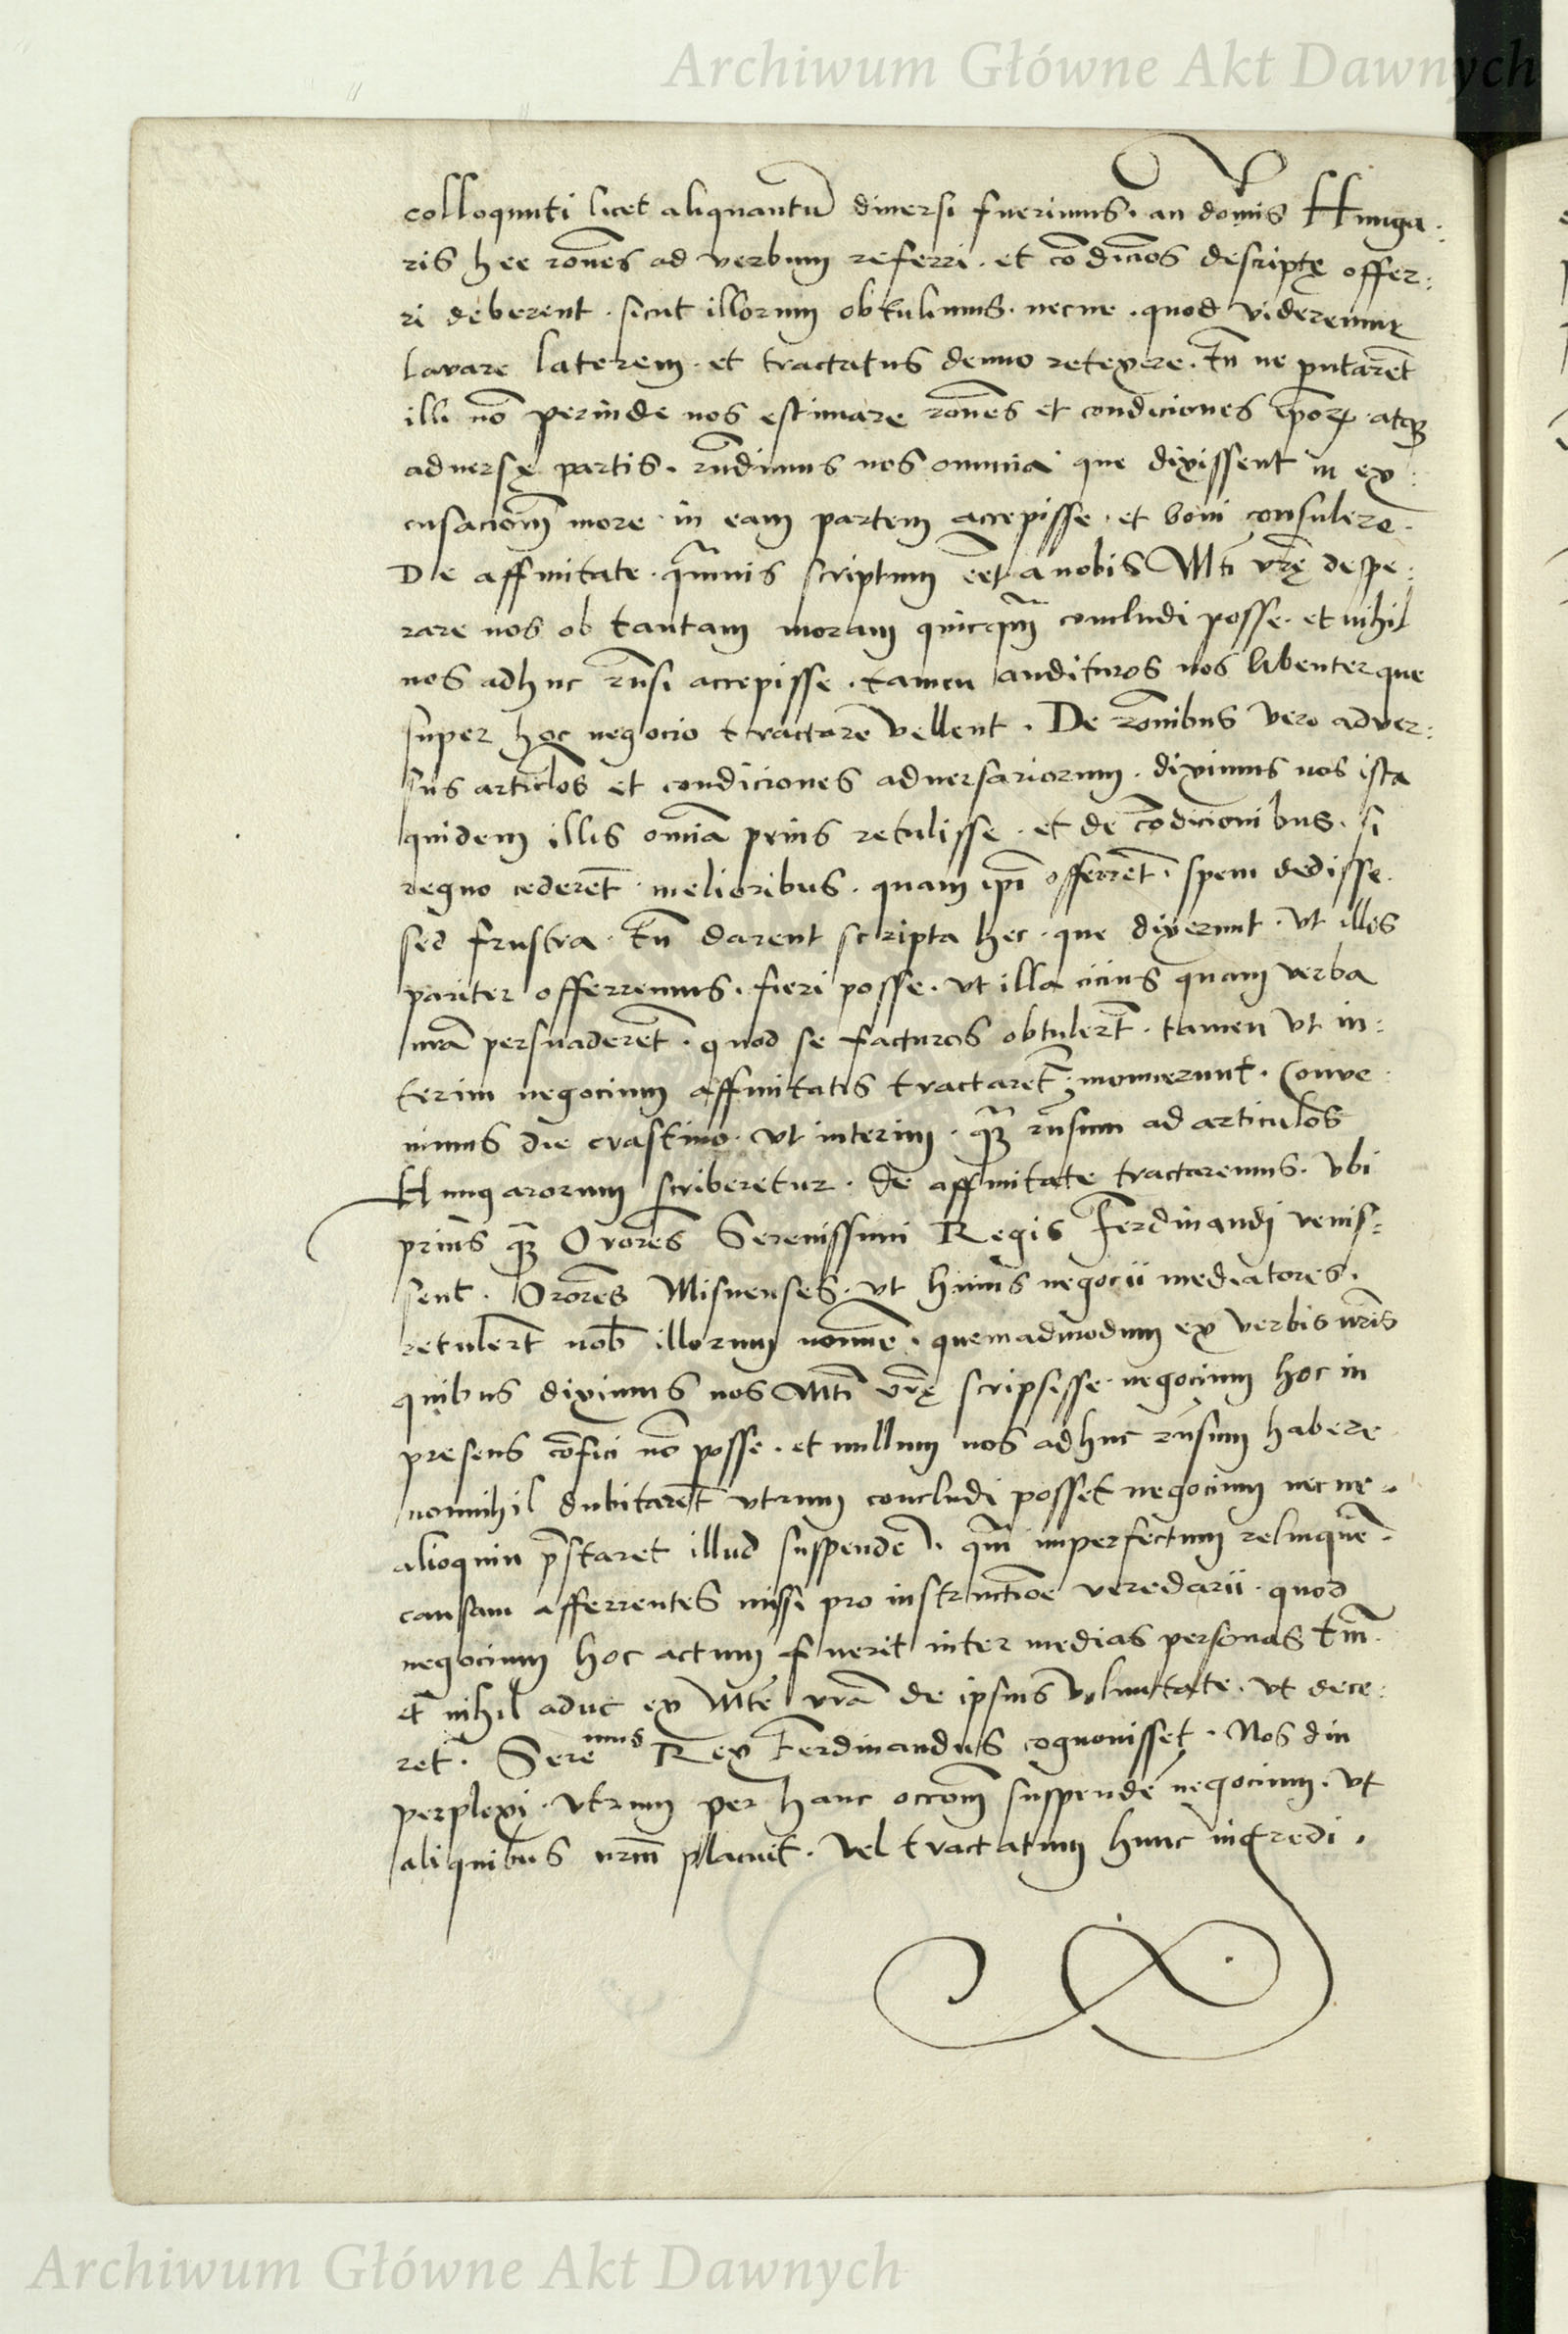 Archiwum Główne Akt Dawnych
colloquuti licet aliquantū diuersi fuerimus. an dominis Hunga:
ris hee rōnes ad verbum referri. et cōdicōes descriptę offer:
ri deberent. sicut illorum obtulimus. necne. quod videremur
lavare laterem. et tractatus denuo retexere. tn̄ ne putarēt
illi nō perinde nos estimare rōnes et condiciones ip̄orꝝ atqꝫ
aduersę partis. rn̄dimus nos omnia que dixissent in ex:
cusacionē more in eam partem accepisse. et boni consulere.
De affinitate. q̄muis scriptum eēt a nobis Mti vrę despe:
rare nos ob tantam moram quicq̄m concludi posse. et nihil
nos adhuc rn̄si accepisse. tamen audituros nos libenter que
super hoc negocio tractare vellent. De rōnibus vero adver:
sus articlos et condiciones aduersariorum. diximus nos ista
quidem illis omīa prius retulisse. et de cōdicionibus. si
regno cederēt melioribus. quam ip̄i offerrēt. spem dedisse.
sed frustra. tn̄ darent scripta hec. que dixerunt. vt illis
pariter offerremus. fieri posse. vt illa cicius quam verba
nrā persuaderēt. quod se facturos obtulerūt. tamen vt in:
terim negocium affinitatis tractaret, monuerunt. Conve:
nimus die crastino. vt interim. q̄ꝫ rn̄sum ad articulos
Hungarorum scriberetur. de affinitate tractaremus. vbi
prius q̄ꝫ Orōres Serenissimi Regis Ferdinandi venis:
sent. Orōres Misnenses. vt huius negocii mediatores.
retulerūt nob̄ illorum nomine. quemadmodum ex verbis nrīs
quibus diximus nos Mti vrę scripsisse. negocium hoc in
presens cōfici nō posse. et nullum nos adhuc rn̄sum habere
nonnihil dubitarēt vtrum concludi posset negocium necne.
alioquin p̄staret illud suspende. q̄m imperfectum relinque.
causam afferrentes missi pro instructiōe veredarii. quod
negocium hoc actum fuerit inter medias personas tm̄.
et nihil aduc ex Mte vrā de ipsius voluntate. vt dece:
ret. Serenmus Rex Ferdinandus cognouisset. Nos diu
perplexi. vtrum per hanc occōem suspende negocium. vt
aliquibus nrm̄ placuit. vel tractatum hunc ingredi.
Archiwum Główne Akt Dawnych